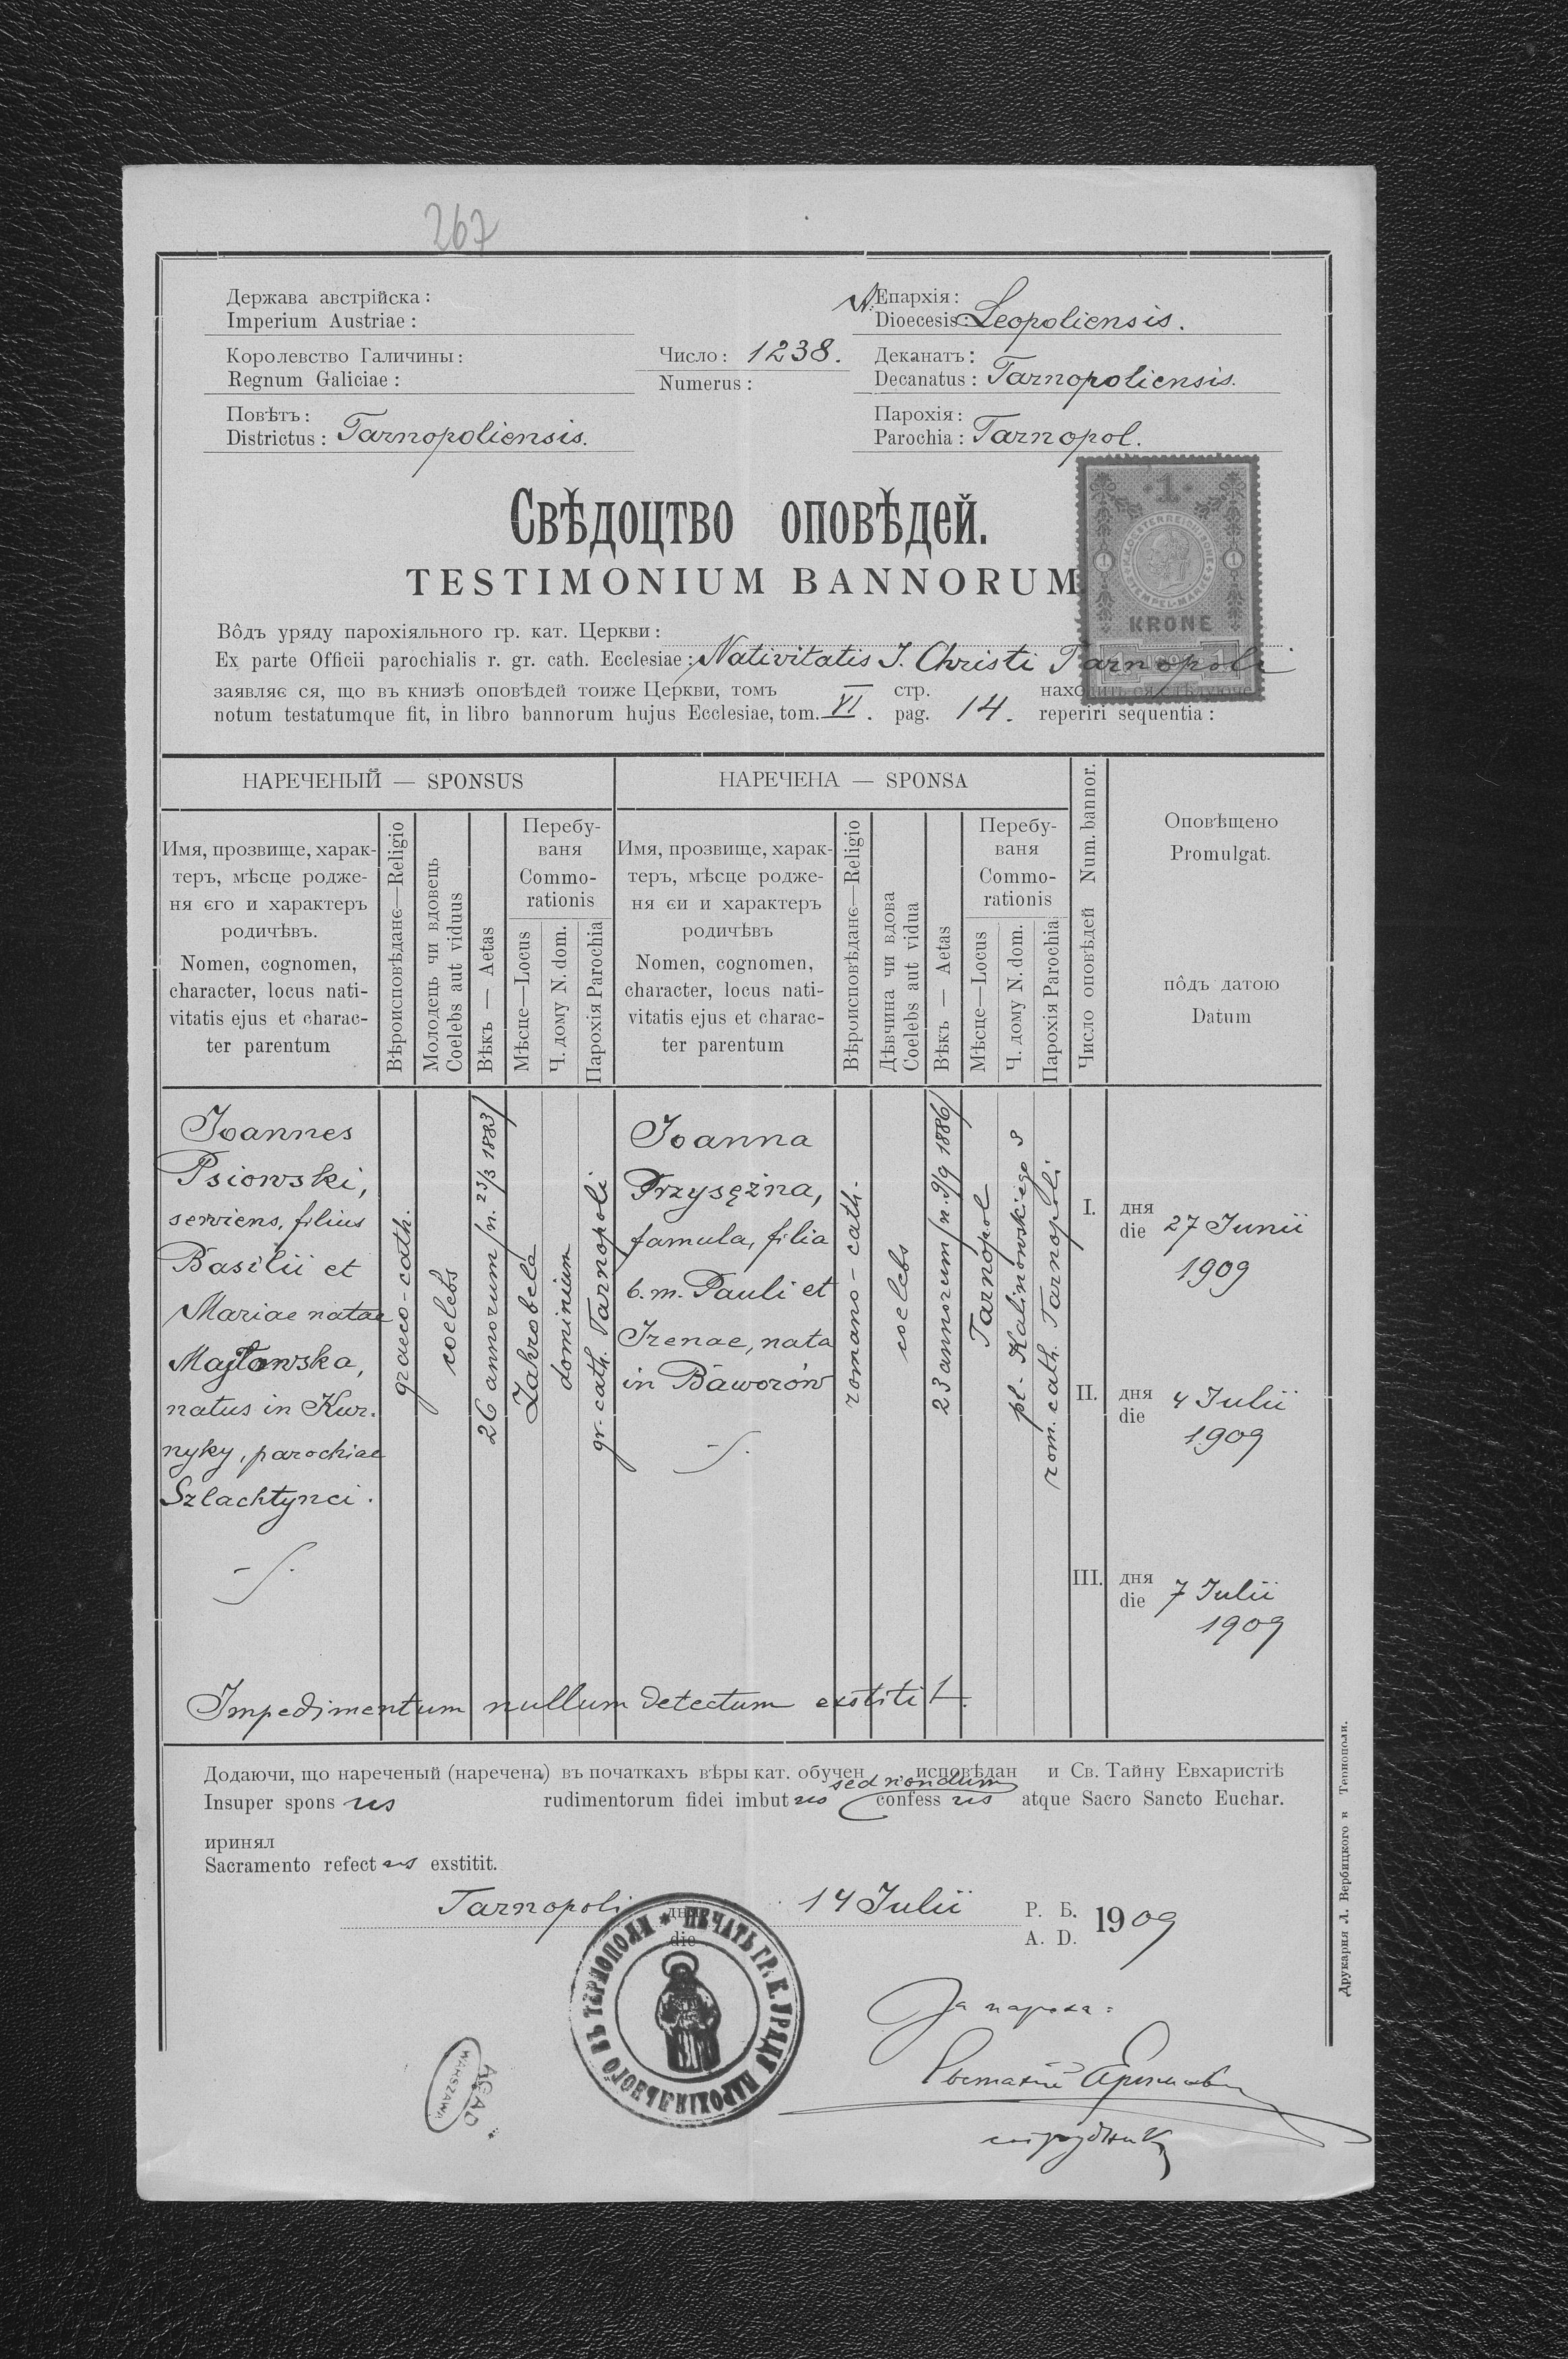 267
Держава австрійска:
Imperium Austriae:
Королевство Галичины:
Regnum Galiciae:
Повѣтъ:
Districtus: Tarnopoliensis.
Число: 1238.
Numerus:
Епархія:
Dioecesis: Leopoliensis.
Деканатъ:
Decanatus: Tarnopoliensis.
Парохія:
Parochia: Tarnopol.
1
K.K. OESTERREICHISCHE STEMPEL-MARKE
1 1
KRONE
Свѣдоцтво оповѣдей.
TESTIMONIUM BANNORUM
Вôдъ уряду парохіяльного гр. кат. Церкви:
Ex parte Officii parochialis r. gr. cath. Ecclesiae: Nativitatis J. Christi Tarnopoli
заявляє ся, що въ книзѣ оповѣдей тоиже Церкви, томъ стр. находить ся слѣдуюче
notum testatumque fit, in libro bannorum hujus Ecclesiae, tom. VI. pag. 14. reperiri sequentia:
НАРЕЧЕНЫЙ — SPONSUS
НАРЕЧЕНА — SPONSA
Имя, прозвище, харак-
теръ, мѣсце родже-
ня єго и характеръ
родичѣвъ.
Nomen, cognomen,
character, locus nati-
vitatis ejus et charac-
ter parentum
Вѣроисповѣданє—Religio
Молодець чи вдовець
Coelebs aut viduus
Вѣкъ — Aetas
Перебу-
ваня
Commo-
rationis
Мѣсце—Locus
Ч. дому N. dom.
Парохія Parochia
Имя, прозвище, харак-
теръ, мѣсце родже-
ня єи и характеръ
родичѣвъ
Nomen, cognomen,
character, locus nati-
vitatis ejus et charac-
ter parentum
Вѣроисповѣданє—Religio
Дѣвчина чи вдова
Coelebs aut vidua
Вѣкъ — Aetas
Перебу-
ваня
Commo-
rationis
Мѣсце—Locus
Ч. дому N. dom.
Парохія Parochia
Число оповѣдей Num. bannor.
Оповѣщено
Promulgat.
пôдъ датою
Datum
Joannes
Psiowski,
serviens, filius
Basilii et
Mariae natae
Majtowska,
natus in Kur-
nyky, parochiae
Szlachtynci.
graeco-cath.
coelebs
26 annorum /n. 23/3 1883/
Zahrobela
dominium
gr. cath. Tarnopoli
Joanna
Przysężna,
famula, filia
b. m. Pauli et
Irenae, nata
in Baworów
romano-cath.
coelebs
23 annorum /n. 9/9 1886/
Tarnopol
pl. Kalinowskiego 8
rom. cath. Tarnopoli
I. дня
die 27 Junii
1909
II. дня
die 4 Julii
1909
III. дня
die 7 Julii
1909
Impedimentum nullum detectum exstitit.
Додаючи, що нареченый (наречена) въ початкахъ вѣры кат. обучен исповѣдан и Св. Тайну Евхаристіѣ
sed nondum
Insuper spons us rudimentorum fidei imbut us confess us atque Sacro Sancto Euchar.
иринял
Sacramento refect us exstitit.
Tarnopoli дня 14 Julii Р. Б. 1909
die A. D.
ПЕЧАТЬ ГР. К. УРЯДУ ПАРОХІЯЛЬНОГО ВЪ ТЕРНОПОЛИ
За пароха:
сотрудник
AGAD
WARSZAWA
Друкарня Л. Вербицкого в Тернополи.